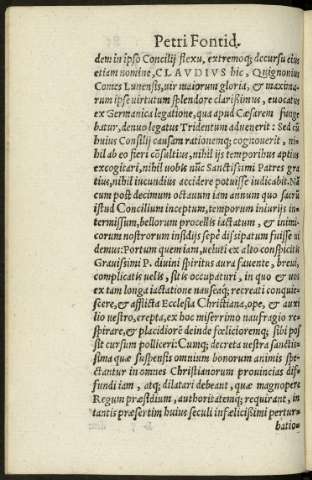 Petri Fontid.
dem in ipso Concilij flexu, extremoq; decursu eius
etiam nomine, CLAVDIVS hic, Quignonius
Comes Lunensis, uir maiorum gloria, & maxima-
rum ipse uirtutum splendore clarissimus, euocatus
ex Germanica legatione, qua apud Cæsarem funge
batur, denuo legatus Tridentum aduenerit: Sed cũ
huius Consilij causam rationemq; cognouerit, ni-
hil ab eo fieri cõsultius, nihil ijs temporibus aptius
excogitari, nihil nobis uũc Sanctissimi Patres gra
tius, nihil iucundius accidere potuisse iudicabit. Nã
cum post decimum octauum iam annum quo sacrũ
istud Concilium inceptum, temporum iniurijs in-
termissum, bellorum procellis iactatum, & inimi-
corum nostrorum insidijs sæpè dissipatum fuisse ui
demus: Portum quem iam, ueluti ex alto conspicitis
Grauissimi P. diuini spiritus aura fauente, breui,
complicatis uelis, sitis occupaturi, in quo & uos
ex tam longa iactatione nauseaq; recreati conquie-
scere, & afflicta Ecclesia Christiana, ope, & auxi
lio uestro, erepta, ex hoc miserrimo naufragio re-
spirare, & placidiorẽ deinde fœlicioremq; sibi pos
sit cursum polliceri: Cumq; decreta uestra sanctis-
sima quæ suspensis omnium bonorum animis spe-
ctantur in omnes Christianorum prouincias dif-
fundi iam, atq; dilatari debeant, quæ magnopere
Regum præsidium, authoritatemq; requirant, in
tantis præsertim huius seculi infælicissimi pertur-
batio-